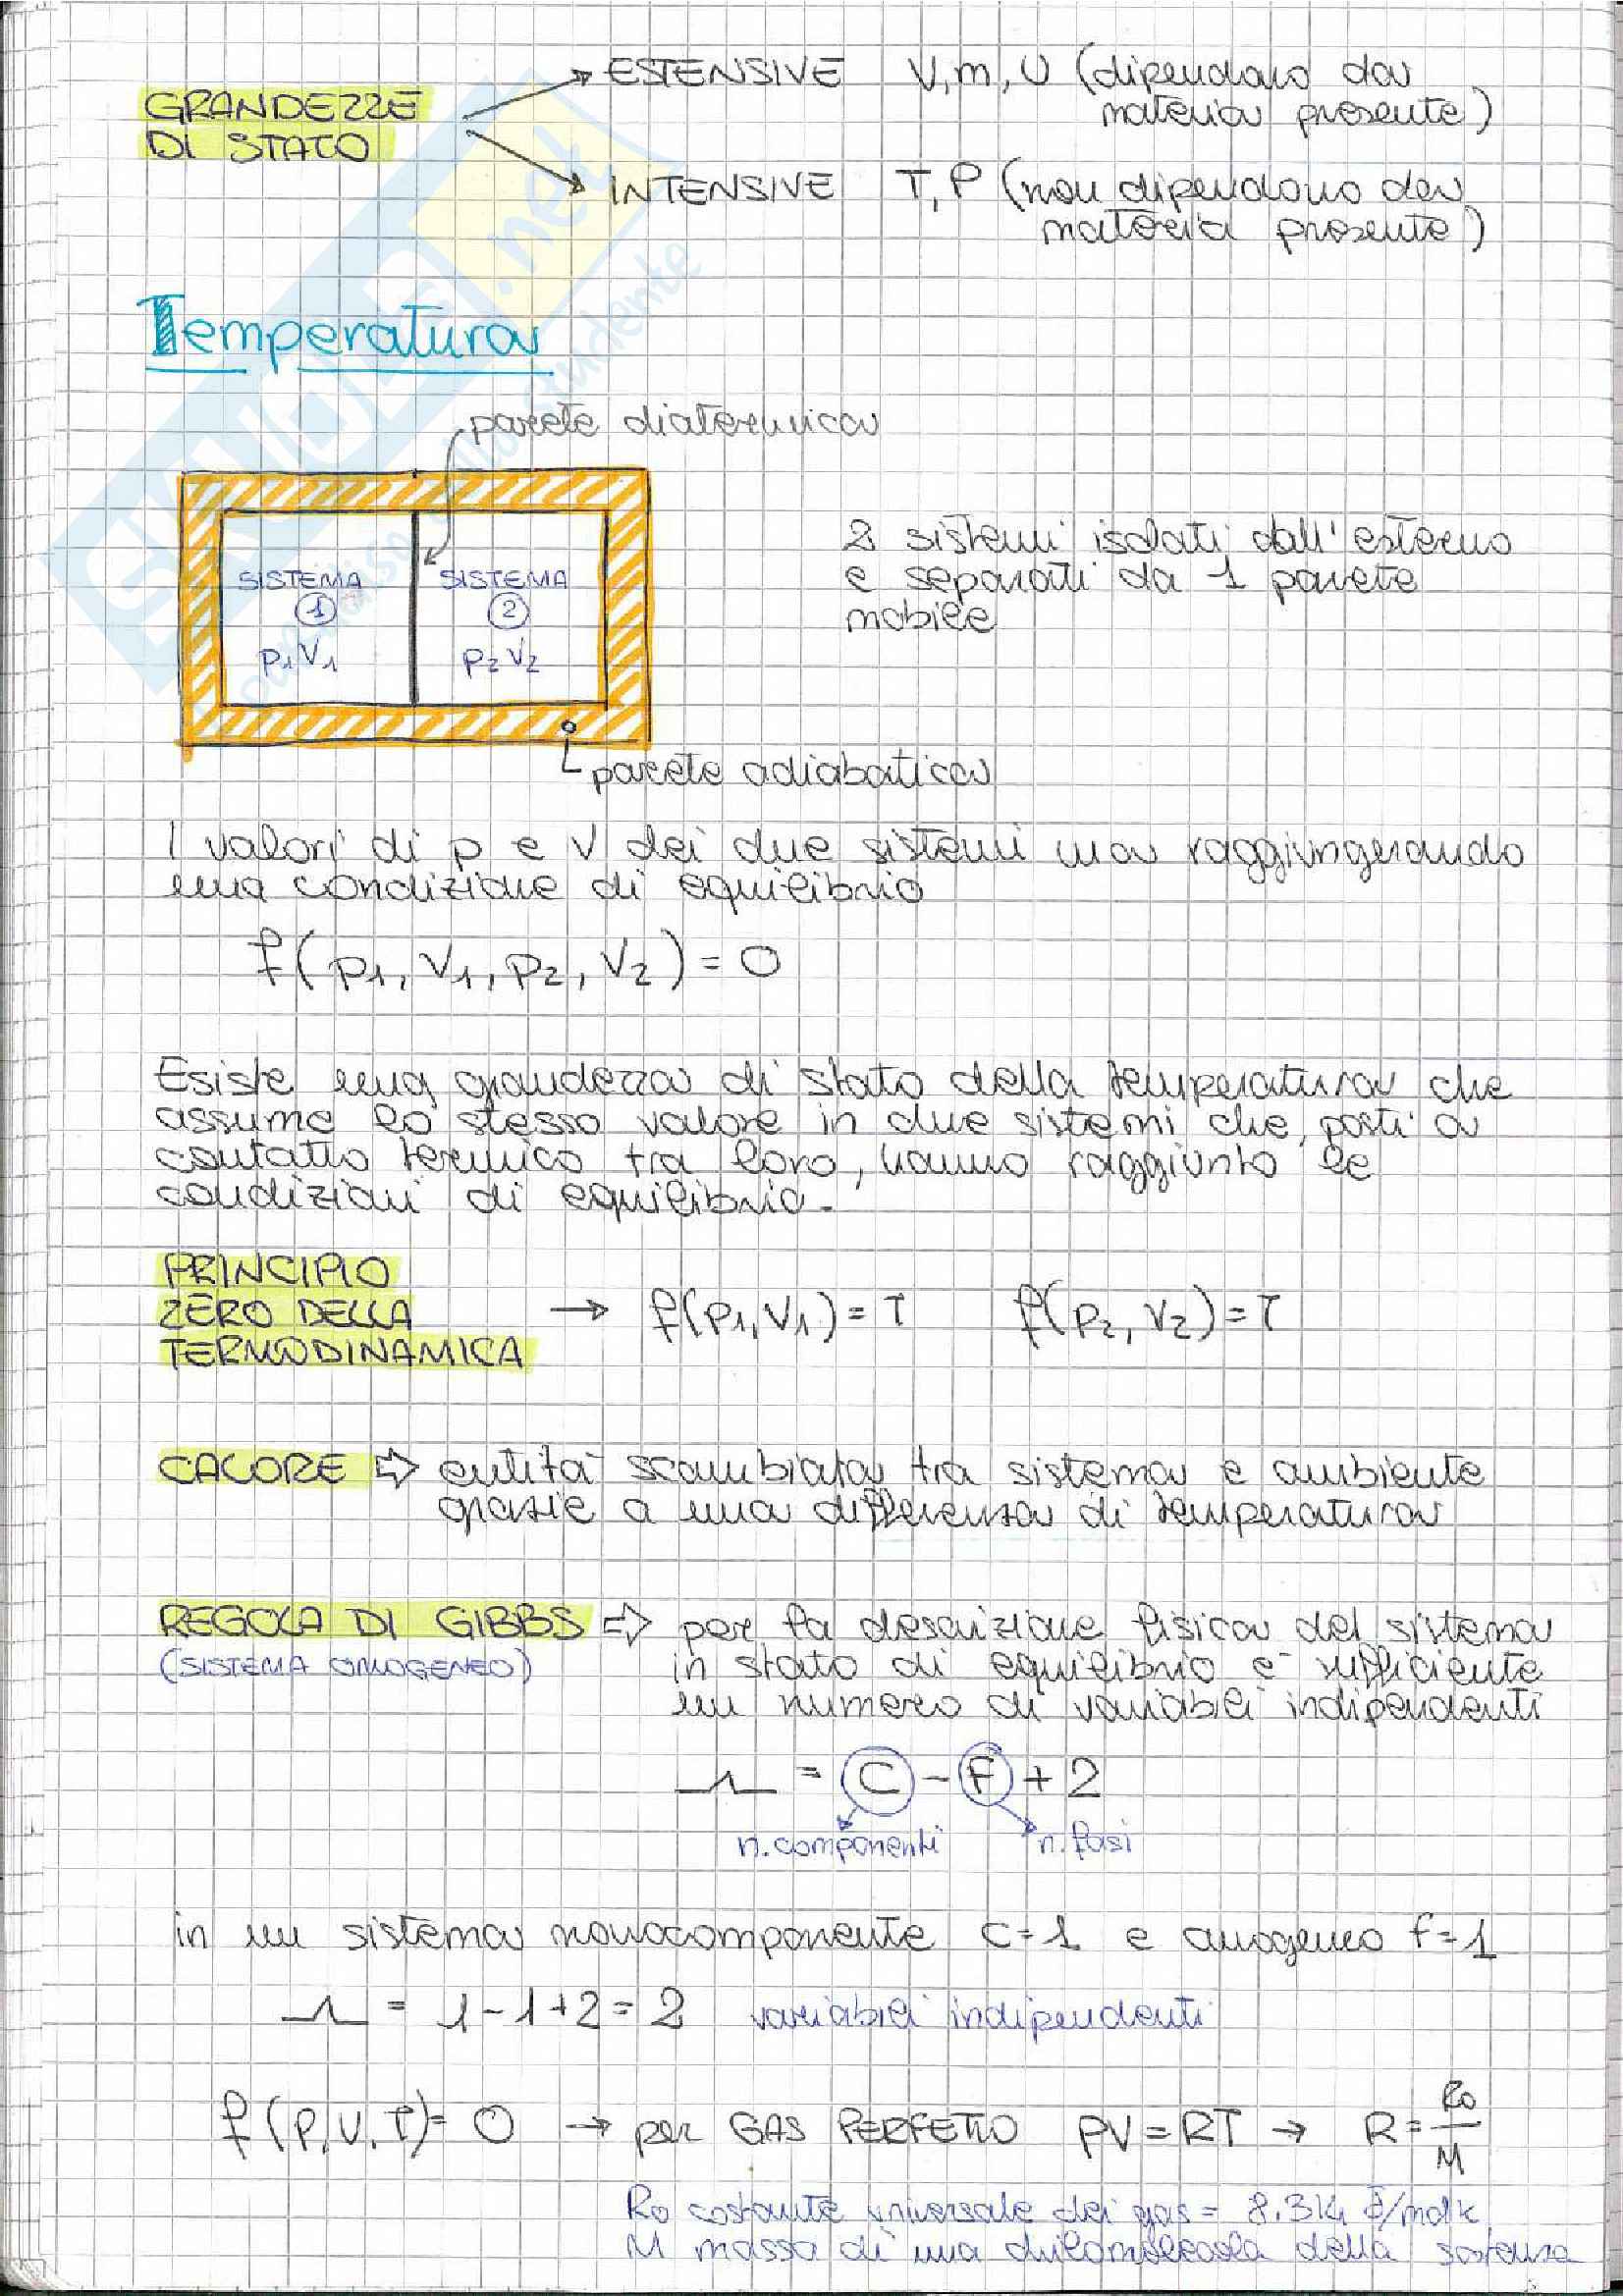 GRANDEZZE
DI STATO
ESTENSIVE V, m, U (dipendono da
materia presente)
INTENSIVE T, P (non dipendono da
materia presente)
Temperatura
parete diatermica
SISTEMA
1
p1 V1
SISTEMA
2
p2 V2
2 sistemi isolati dall'esterno
e separati da 1 parete
mobile
parete adiabatica
I valori di p e V dei due sistemi raggiungeranno
una condizione di equilibrio
f(p1, V1, p2, V2) = 0
Esiste una grandezza di stato della temperatura che
assume lo stesso valore in due sistemi che, posti a
contatto termico tra loro, hanno raggiunto le
condizioni di equilibrio.
PRINCIPIO
ZERO DELLA
TERMODINAMICA
→ f(p1, V1) = T f(p2, V2) = T
CALORE ⇨ entità scambiata tra sistema e ambiente
grazie a una differenza di temperatura
REGOLA DI GIBBS ⇨ per la descrizione fisica del sistema
(SISTEMA OMOGENEO) in stato di equilibrio è sufficiente
un numero di variabili indipendenti
= C - F + 2
n. componenti n. fasi
in un sistema monocomponente C=1 e omogeneo f=1
= 1-1+2 = 2 variabili indipendenti
f(P, V, T) = 0 → per GAS PERFETTO PV = RT → R = Ro/M
Ro costante universale dei gas = 8.314 J/molK
M massa di una chilomolecola della sostanza